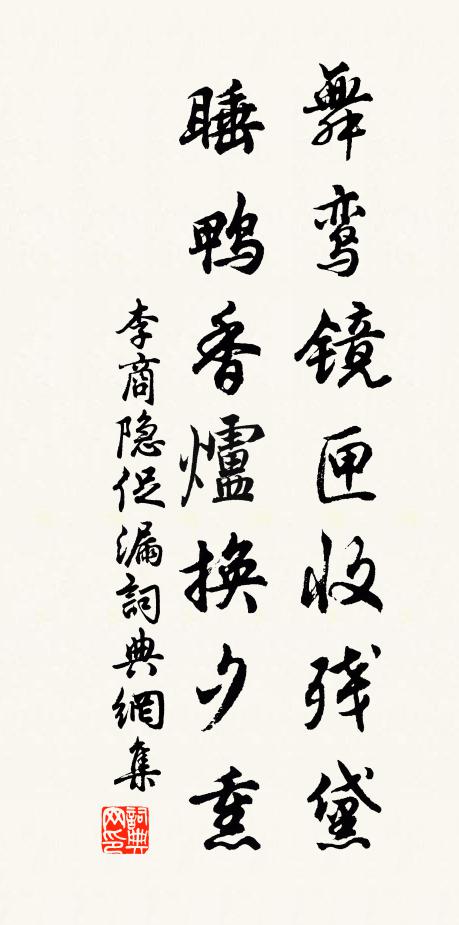 舞鸾镜匣收残黛
睡鴨香爐换夕熏
李商隐促漏詞典網集
詞典网印